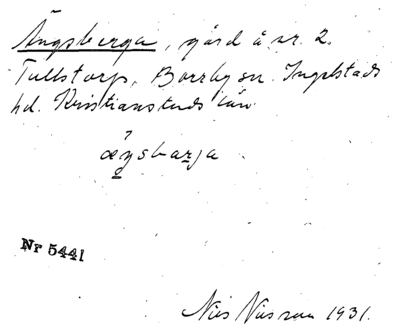 Ängsberga, gård å nr. 2.
Tullstorp, Borrby sn. Ingelstads
hd. Kristianstads län
æŋsbarja
Nr 5441
Nils Nilsson 1931.